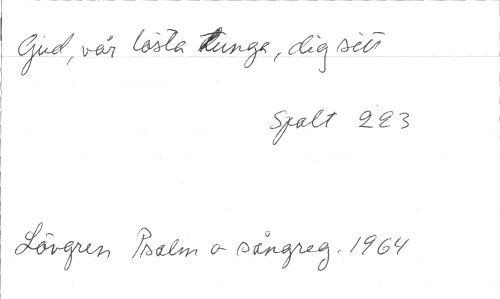 Gud, vår lösta tunga, dig sitt
Spalt 223
Lövgren Psalm o sångreg. 1964